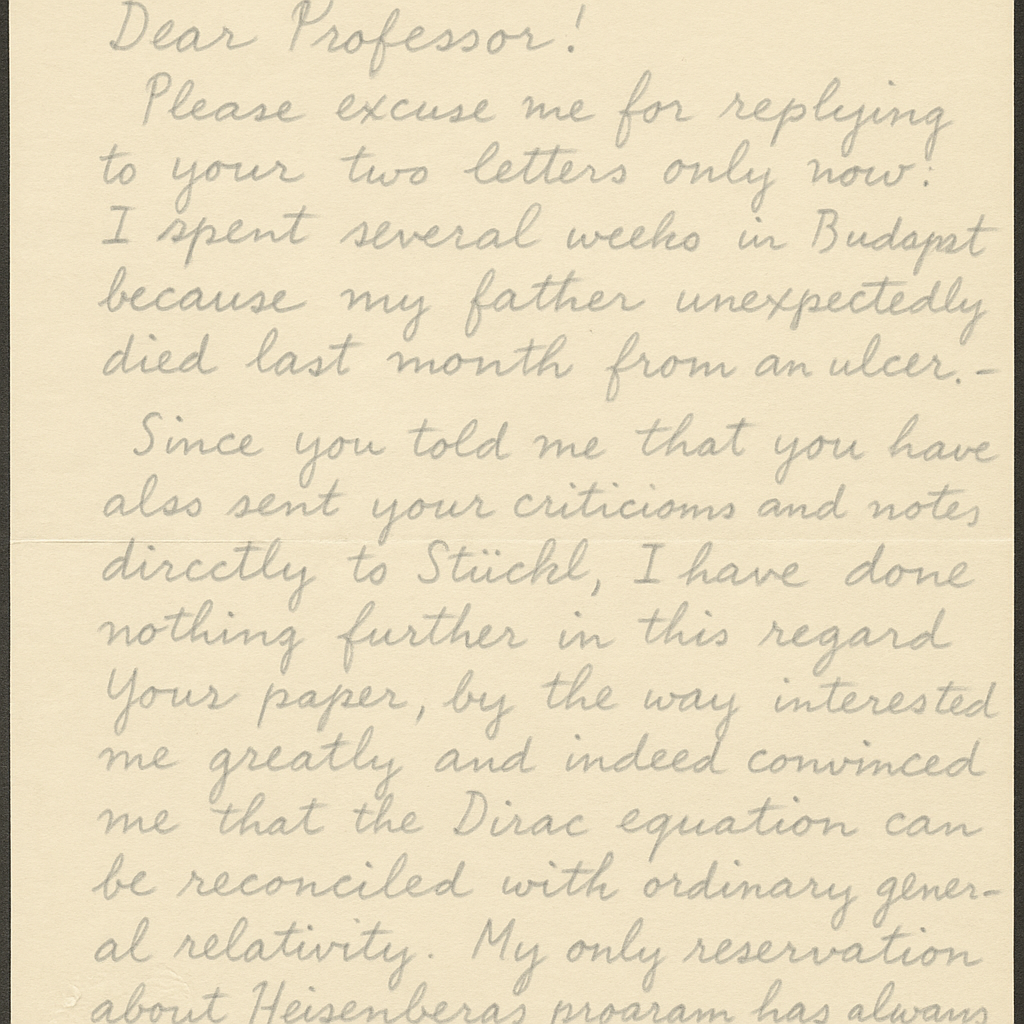 Dear Professor!
Please excuse me for replying
to your two letters only now:
I spent several weeks in Budapst
because my father unexpectedly
died last month from an ulcer.-
Since you told me that you have
also sent your criticioms and notes
dircctly to Stückl, I have done
nothing further in this regard
Your paper, by the way interested
me greatly and indeed convinced
me that the Dirac equation can
be reconciled with ordinary gener-
al relativity. My only reservation
about Heisenbergs program has always